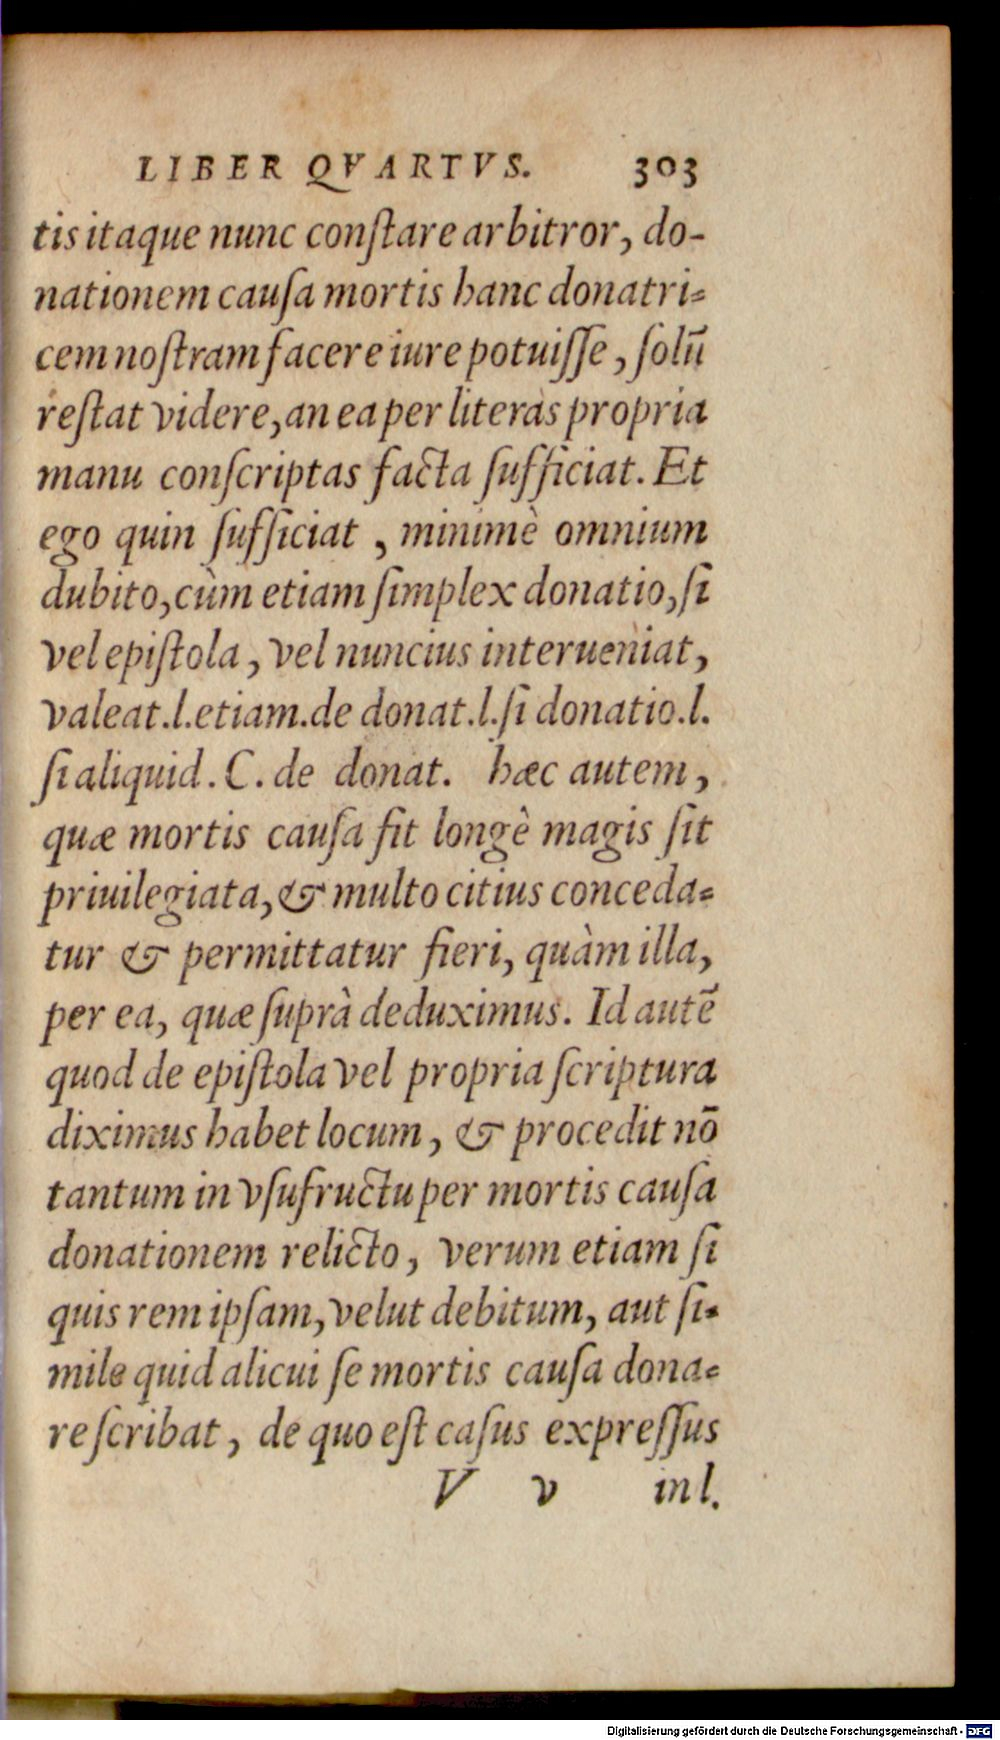 LIBER QVARTVS. 303
tis itaque nunc conſtare arbitror, do-
nationem cauſa mortis hanc donatri-
cem noſtram facere iure potuiſſe, ſolū
reſtat videre, an ea per literas propria
manu conſcriptas facta ſufficiat. Et
ego quin ſufficiat, minimè omnium
dubito, cùm etiam ſimplex donatio, ſi
vel epiſtola, vel nuncius interueniat,
valeat. l. etiam. de donat. l. ſi donatio. l.
ſi aliquid. C. de donat. hæc autem,
quæ mortis cauſa fit longè magis ſit
priuilegiata, & multo citius conceda-
tur & permittatur fieri, quàm illa,
per ea, quæ ſuprà deduximus. Id autē
quod de epiſtola vel propria ſcriptura
diximus habet locum, & procedit nō
tantum in vſufructu per mortis cauſa
donationem relicto, verum etiam ſi
quis rem ipſam, velut debitum, aut ſi-
mile quid alicui ſe mortis cauſa dona-
re ſcribat, de quo eſt caſus expreſſus
V v in l.
Digitalisierung gefördert durch die Deutsche Forschungsgemeinschaft - DFG